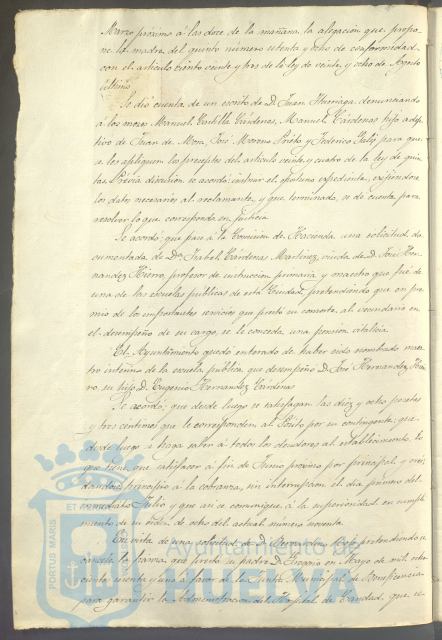 Marzo próximo á las doce de la mañana la alegación que propo-
ne la madre del quinto número setenta y ocho de conformidad
con el artículo ciento veinte y tres de la ley de veinte y ocho de Agosto
último.
Se dió cuenta de un escrito de D. Juan denunciando
á los mozos Manuel Cárdenas, Manuel Cárdenas hijo adop-
tivo de Juan de Mora, José Moreno Prieto y Federico para que
se les apliquen los preceptos del artículo veinte y cuatro de la ley de quin-
tas. Prévia discusión, se acordó: instruir el oportuno expediente,
los datos necesarios al reclamante, y que terminado, se dé cuenta para
resolver lo que corresponda en justicia.
Se acordó: que pase á la Comisión de Hacienda una solicitud do-
cumentada de Dª Isabel Cárdenas Martinez, viuda de D. José Her-
nandez Hierro, profesor de instruccion primaria y maestro que fué de
una de las escuelas públicas de esta Ciudad, pretendiendo que en pre-
mio de los importantes servicios que prestó su consorte al vecindario en
el desempeño de su cargo, se le conceda una pensión vitalicia.
El Ayuntamiento quedó enterado de haber sido nombrado maes-
tro interino de la escuela pública que desempeñó D. José Hernandez Hier-
ro, su hijo D. Eugenio Hernandez Cárdenas.
Se acordó: que desde luego se satisfagan las diez y ocho pesetas
y tres centimos que le corresponden al Pósito por su contingente; que
desde luego se haga saber á todos los deudores al establecimiento lo
que tiene que satisfacer á fin de Junio próximo por principal y
principio á la cobranza, sin interrupcion el dia primero del
inmediato Julio y que así se comunique á la superioridad en cumpli-
miento de su orden de ocho del actual número noventa.
En vista de una solicitud de D. pretendiendo se
cancele la fianza que prestó su padre D. en Mayo de mil ocho-
cientos sesenta y uno á favor de la Junta Municipal de Beneficencia
para garantir la administracion del Hospital de Caridad, que se
Ayuntamiento de
HUELVA
PORTUS MARIS
ET